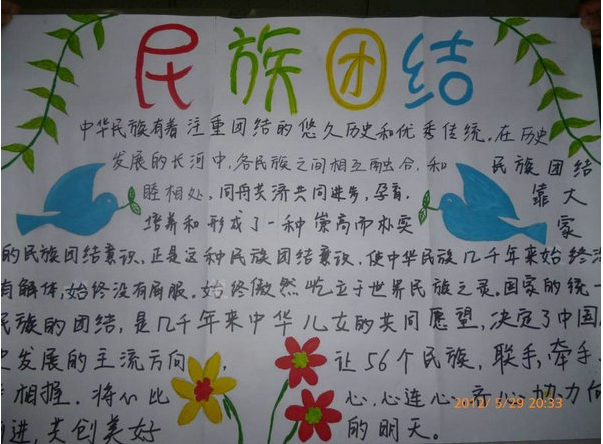 民族团结
中华民族有着注重团结的悠久历史和优秀传统。在历史
发展的长河中,各民族之间相互融合,和
睦相处,同舟共济共同进步,孕育,
培养和形成了一种崇高而朴实
民族团结
靠大
家
的民族团结意识,正是这种民族团结意识,使中华民族几千年来始终没
有解体,始终没有屈服。始终傲然屹立于世界民族之灵。国家的统一
民族的团结,是几千年来中华儿女的共同愿望,决定了中国
史发展的主流方向,让56个民族,联手,牵手,
相握,将心比心,心连心,齐心协力向
前进,共创美好的明天。
2012/5/29 20:33